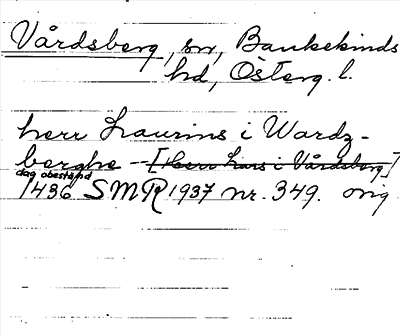 Vårdsberg, sn, Bankekinds
hd, Österg. l.
herr Laurins i Wardz-
berghe -- [Herr Lars i Vårdsberg]
dag obestämd
1436 SMR 1937 nr. 349. orig